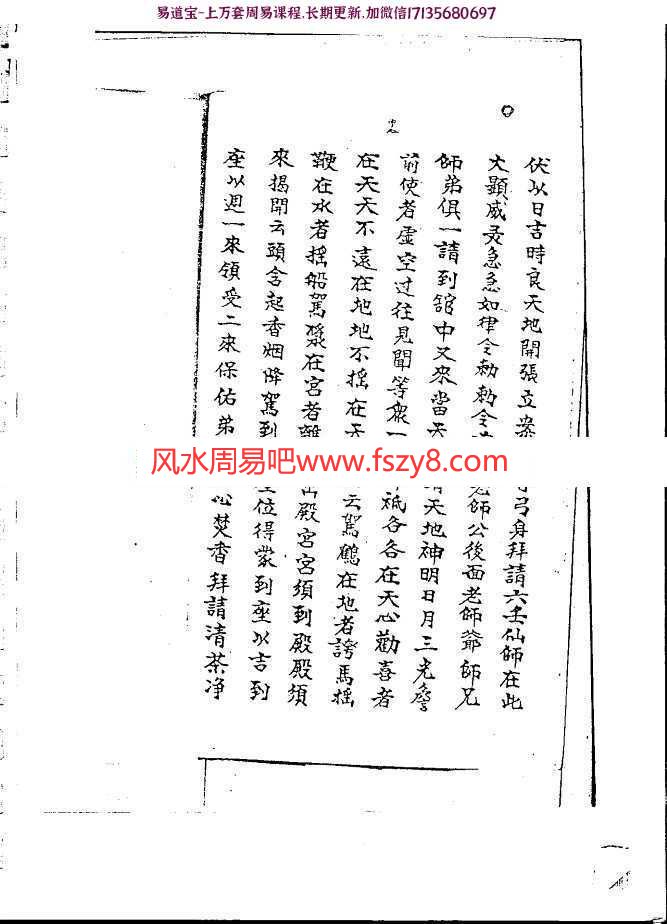 易道宝-上万套周易课程.长期更新.加微信17135680697
伏以日吉時良天地開張立
弓身拜請六壬仙師在此
大顯威灵急急如律令勅勅令
老師公後面老師爺師兄
師弟俱一請到舘中又來當天
天地神明日月三光詹
前使者虛空过往見聞等衆一
祗各各在天心勸喜者
在天天不遠在地地不摇在天
云駕鶴在地者誇馬摇
鞭在水者摇船駕漿在宮者離
出殿宮宮須到殿殿須
來揭開云頭含起香烟降駕到
位得蒙到座以吉到
座以迎一來領受二來保佑弟
心焚香拜請清茶净
风水周易吧www.fszy8.com